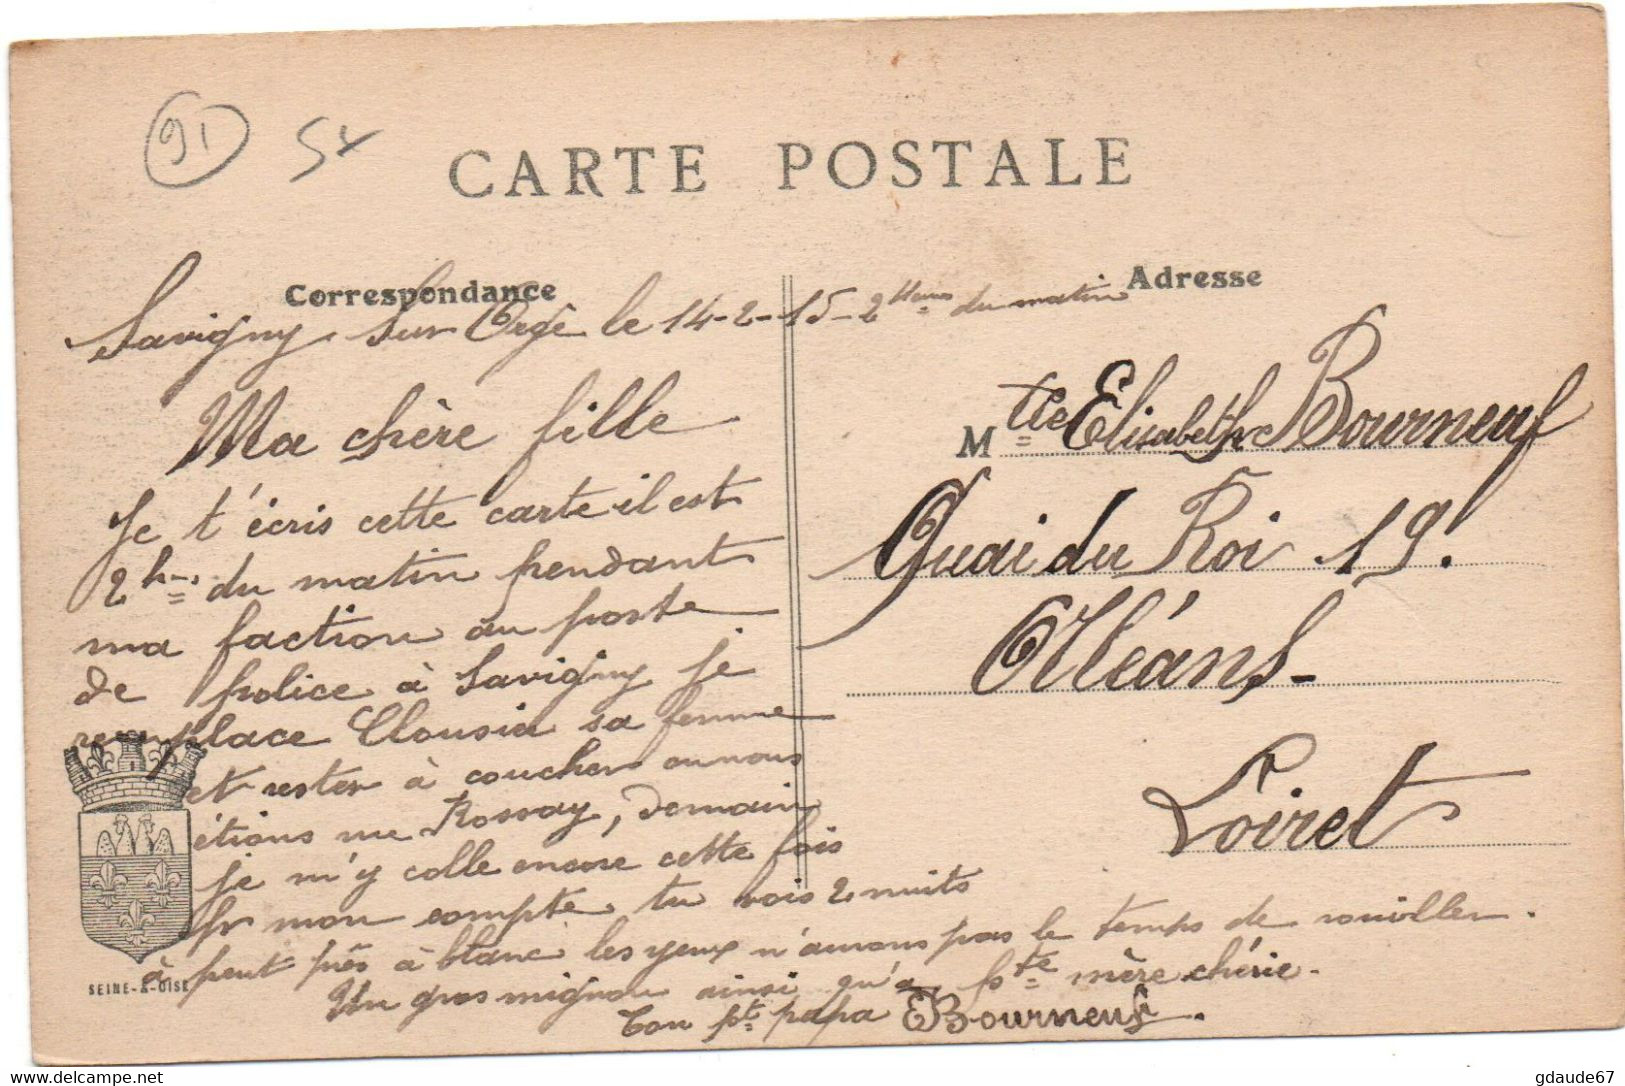 91
CARTE POSTALE
Correspondance
Adresse
Savigny sur Orge le 14-2-15 - 2 heures du matin
Ma chère fille
Je t'écris cette carte il est
2 h du matin pendant
ma faction au poste
de police à Savigny je
remplace Clousia sa femme
et rester à coucher ou nous
étions rue Rossay, demain
je m'y colle encore cette fois
pr mon compte tu vois 2 nuits
à peut près à blanc les yeux n'aurons pas le temps de rouiller.
Un gros mignon ainsi qu'a pte mère chérie.
Ton pt papa EBourneuf.
SEINE-&-OISE
Mlle Elisabeth Bourneuf
Quai du Roi 19.
Orléans-
Loiret
© www.delcampe.net
gdaude67